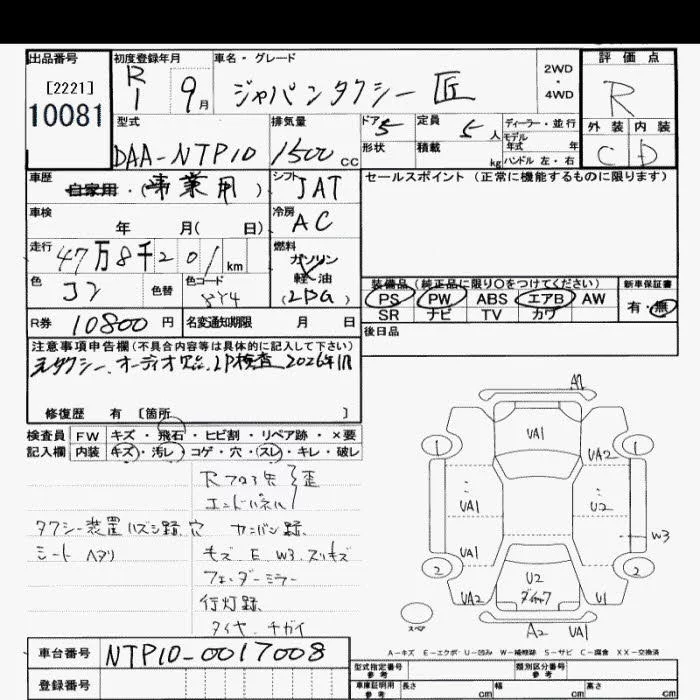 出品番号
[2221]
10081
初度登録年月
R1 9月
車名・グレード
ジャパンタクシー 匠
2WD
・
4WD
評価点
R
外装 内装
C D
型式
DAA-NTP10
排気量
1500 cc
ドア 5
定員 5 人
形状
積載 kg
ディーラー・並行
モデル
年式 年
ハンドル 左・右
車歴
自家用・(事業用)
シフト
JAT
セールスポイント (正常に機能するものに限ります)
車検
年 月( 日)
冷房
AC
走行
47万8千201 km
燃料
ガソリン
軽油
(LPG)
色
コン
色替
色コード
8Y4
装備品(純正品に限り○をつけてください)
PS PW ABS エアB AW
SR ナビ TV カワ
新車保証書
有・無
R券 10800円
名変通知期限 月 日
後日品
注意事項申告欄(不具合内容等は具体的に記入して下さい)
元タクシー、オーディオ欠品、LP検査 2026年1月
修復歴 有 [箇所 ]
検査員 FW キズ・飛石・ヒビ割・リペア跡・×要
記入欄 内装 キズ・汚レ・コゲ・穴・スレ・キレ・破レ
Rフロア先 歪
エンドパネル
タクシー装置ハズシ跡、穴 カンバン跡
シート ヘタリ
モズ E W3 スリキズ
フェンダーミラー
行灯跡
タイヤ チガイ
A1
UA1
1 1
UA2
UA1
U2
W3
UA1
2 2
U2
UA2
U1
スペア
A2 UA1
A-キズ E-エクボ U-凹み W-補修跡 S-サビ C-腐食 XX-交換済
車台番号 NTP10-0017008
登録番号
型式指定番号
参考
類別区分番号
参考
車庫証明用
参考
長さ cm 幅 cm 高さ cm